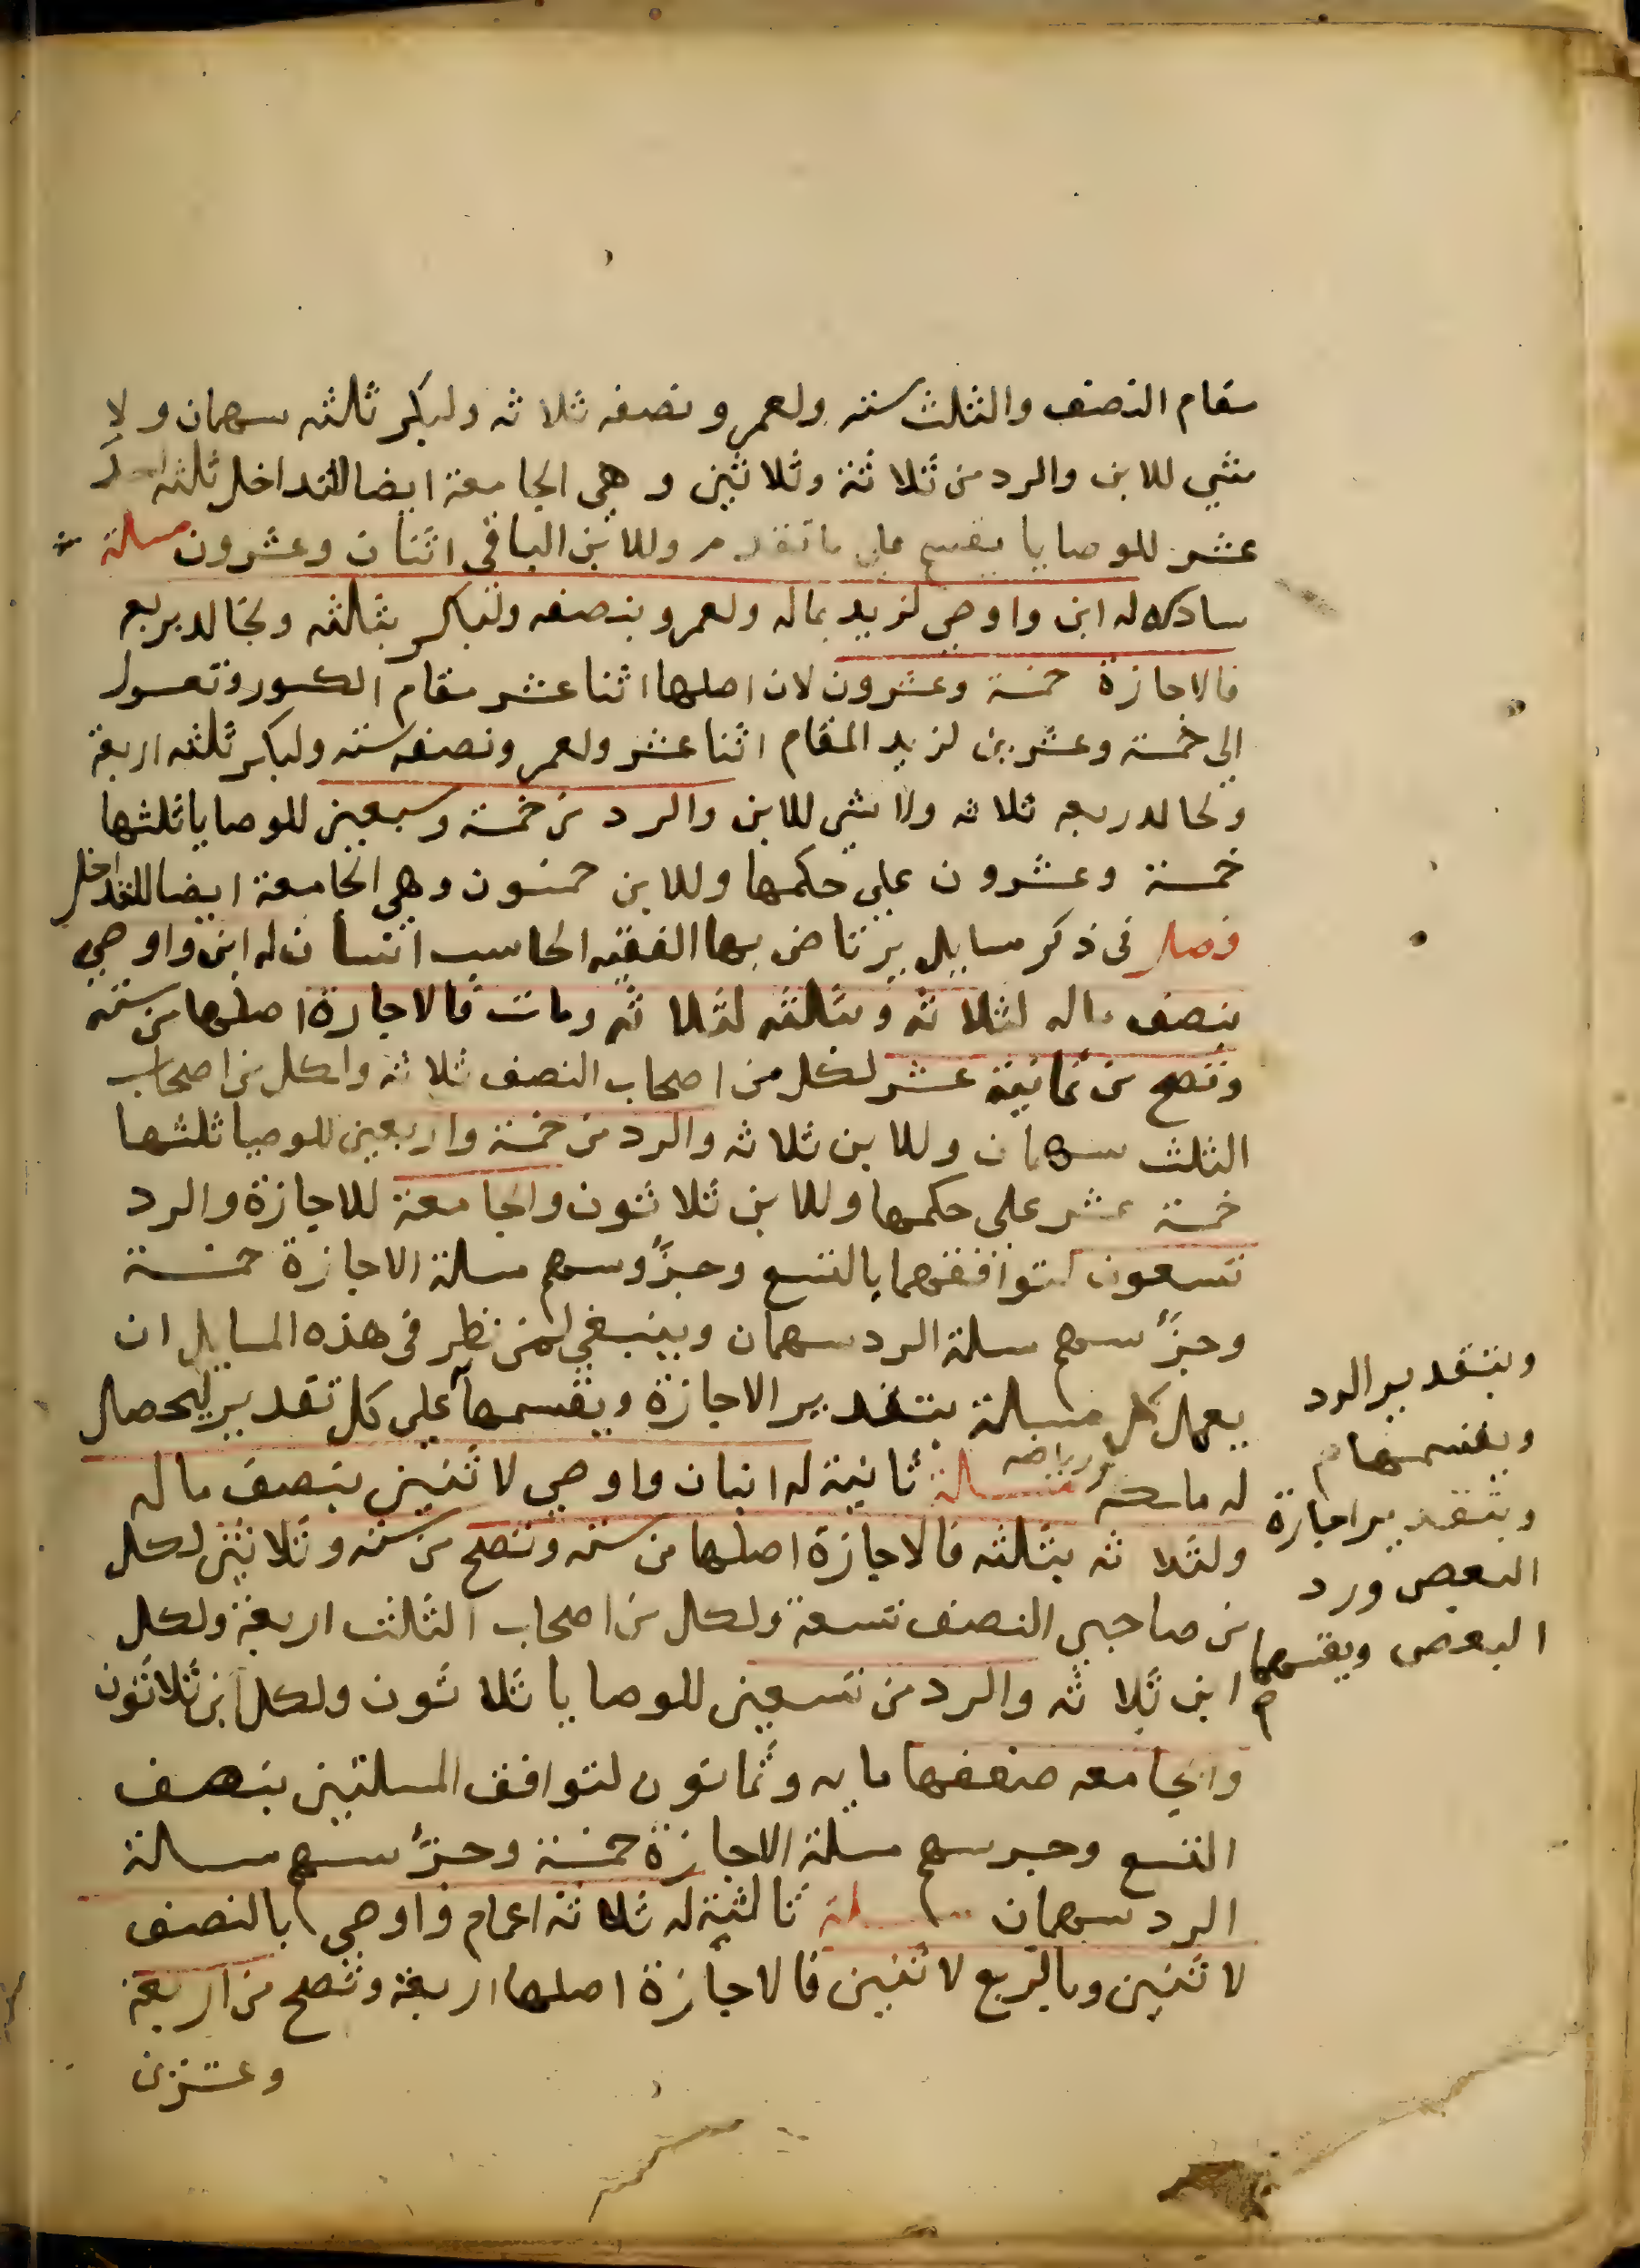 مقام النصف والثلث سته ولعمرو نصفه ثلاثه ولبكر ثلثه سهمان ولا
شي للابن والرد من ثلاثة وثلاثين وهي الجامعة ايضا للتداخل ثلثها احد
عشر للوصايا يقسم على ما تقدم وللابن الباقي اثنان وعشرون مسلة
سادسه له ابن واوصي لزيد بماله ولعمرو بنصفه ولبكر بثلثه ولخالد بربعه
فالاجازة خمسة وعشرون لان اصلها اثنا عشر مقام الكسور وتعول
الي خمسة وعشرين لزيد المقام اثنا عشر ولعمرو نصفه سته ولبكر ثلثه اربعة
ولخالد ربعه ثلاثه ولا شي للابن والرد من خمسة وسبعين للوصايا ثلثها
خمسة وعشرون علي حكمها وللابن خمسون وهي الجامعة ايضا للتداخل
فصل في ذكر مسايل يرتاض بها الفقيه الحاسب انسان له ابن واوصي
بنصف ماله لثلاثه وبثلثه لثلاثه ومات فالاجازة اصلها من سته
وتصح من ثمانية عشر لكل من اصحاب النصف ثلاثه ولكل من اصحاب
الثلث سهمان وللابن ثلاثه والرد من خمسة واربعين للوصيا ثلثها
خمسة عشر علي حكمها وللابن ثلاثون والجامعة للاجازة والرد
تسعون لتوافقهما بالتسع وجزؤ سهم مسلة الاجازة خمسة
وجزؤ سهم مسلة الرد سهمان وينبغي لمن نظر في هذه المسايل ان
يعمل كل مسلة بتقدير الاجازة ويقسمها علي كل تقدير ليحصل
له ملكة ورياضه مسالة ثانية له ابنان واوصي لاثنين بنصف ماله
ولثلاثه بثلثه فالاجازة اصلها من سته وتصح من سته وثلاثين لكل
من صاحبي النصف تسعة ولكل من اصحاب الثلث اربعة ولكل
ابن ثلاثه والرد من تسعين للوصايا ثلاثون ولكل ابن ثلاثون
والجامعه ضعفها مايه وثمانون لتوافق المسلتين بنصف
التسع وجز سهم مسلة الاجازة خمسة وجزؤ سهم مسالة
الرد سهمان مسلة ثالثة له ثلاثة اعمام واوصي بالنصف
لاثنين وبالربع لاثنين فالاجازة اصلها اربعة وتصح من اربعة
وعشرين
وبتقدير الرد
ويقسمها م
وبتقدير اجازة
البعض ورد
البعض ويقسمها
م